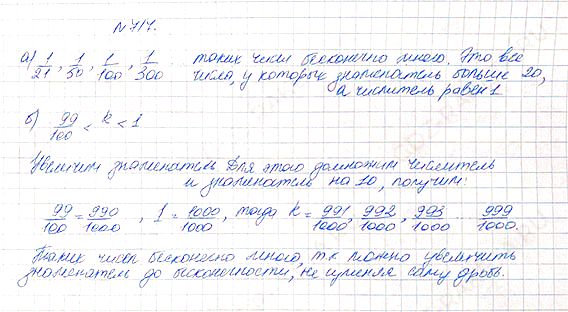 № 717.
а) 1/21, 1/50, 1/100, 1/300 ... таких чисел бесконечно много. Это все
числа, у которых знаменатель больше 20,
а числитель равен 1
б) 99/100 < k < 1
Увеличим знаменатель. Для этого домножим числитель
и знаменатель на 10, получим:
99/100 = 990/1000, 1 = 1000/1000, тогда k = 991/1000, 992/1000, 993/1000 ... 999/1000.
Таких чисел бесконечно много, т.к можно увеличить
знаменатель до бесконечности, не изменяя саму дробь.